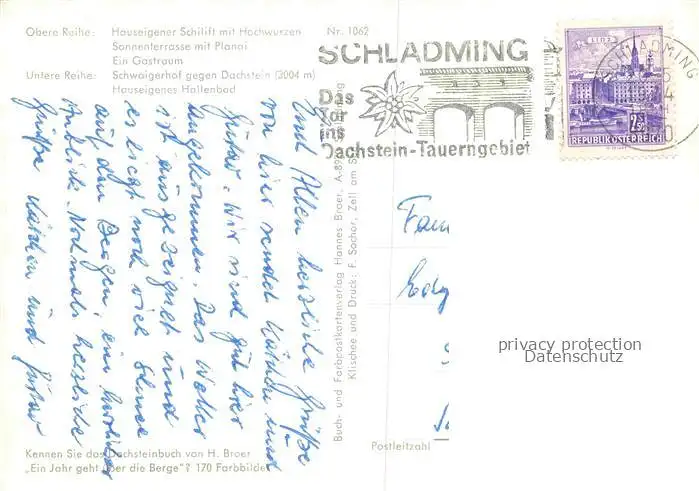 Obere Reihe: Hauseigener Schilift mit Hochwurzen
Sonnenterrasse mit Planai
Ein Gastraum
Untere Reihe: Schwaigerhof gegen Dachstein (3004 m)
Hauseigenes Hallenbad
Nr. 1062
SCHLADMING
Das
Tor
ins
Dachstein-Tauerngebiet
LINZ
2.50
REPUBLIK ÖSTERREICH
SCHLADMING
Euch Allen herzliche Grüße
von hier sendet Kätchen und
Gustav. Wir sind gut hier
angekommen. Das Wetter
ist ausgezeignet und
es liegt noch viel Schnee
auf den Bergen, ein herrlicher
Anblick. Nochmals herzliche
Grüße Kätchen und Gustav
Buch- und Farbpostkartenverlag Hannes Broer, A-89
Klischee und Druck: F. Sochor, Zell am S
Fam
privacy protection
Datenschutz
Postleitzahl
Kennen Sie das Dachsteinbuch von H. Broer
„Ein Jahr geht über die Berge"? 170 Farbbilder